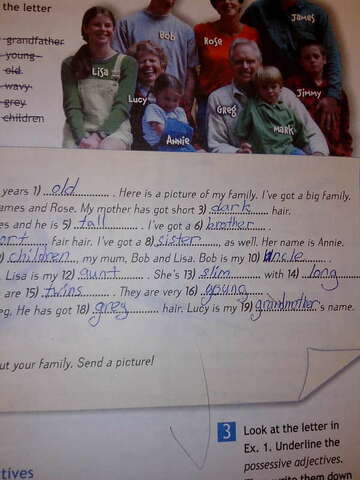 the letter
grandfather
young
old
wavy
grey
children
James
Bob
Rose
Lisa
Lucy
Jimmy
Greg
Annie
Mark
years 1) old . Here is a picture of my family. I've got a big family.
ames and Rose. My mother has got short 3) dark hair.
es and he is 5) tall . I've got a 6) brother .
ort fair hair. I've got a 8) sister , as well. Her name is Annie.
) children , my mum, Bob and Lisa. Bob is my 10) uncle .
. Lisa is my 12) aunt . She's 13) slim with 14) long
are 15) twins . They are very 16) young .
eg. He has got 18) grey hair. Lucy is my 19) grandmother's name.
out your family. Send a picture!
3 Look at the letter in
Ex. 1. Underline the
possessive adjectives.
write them down
tives